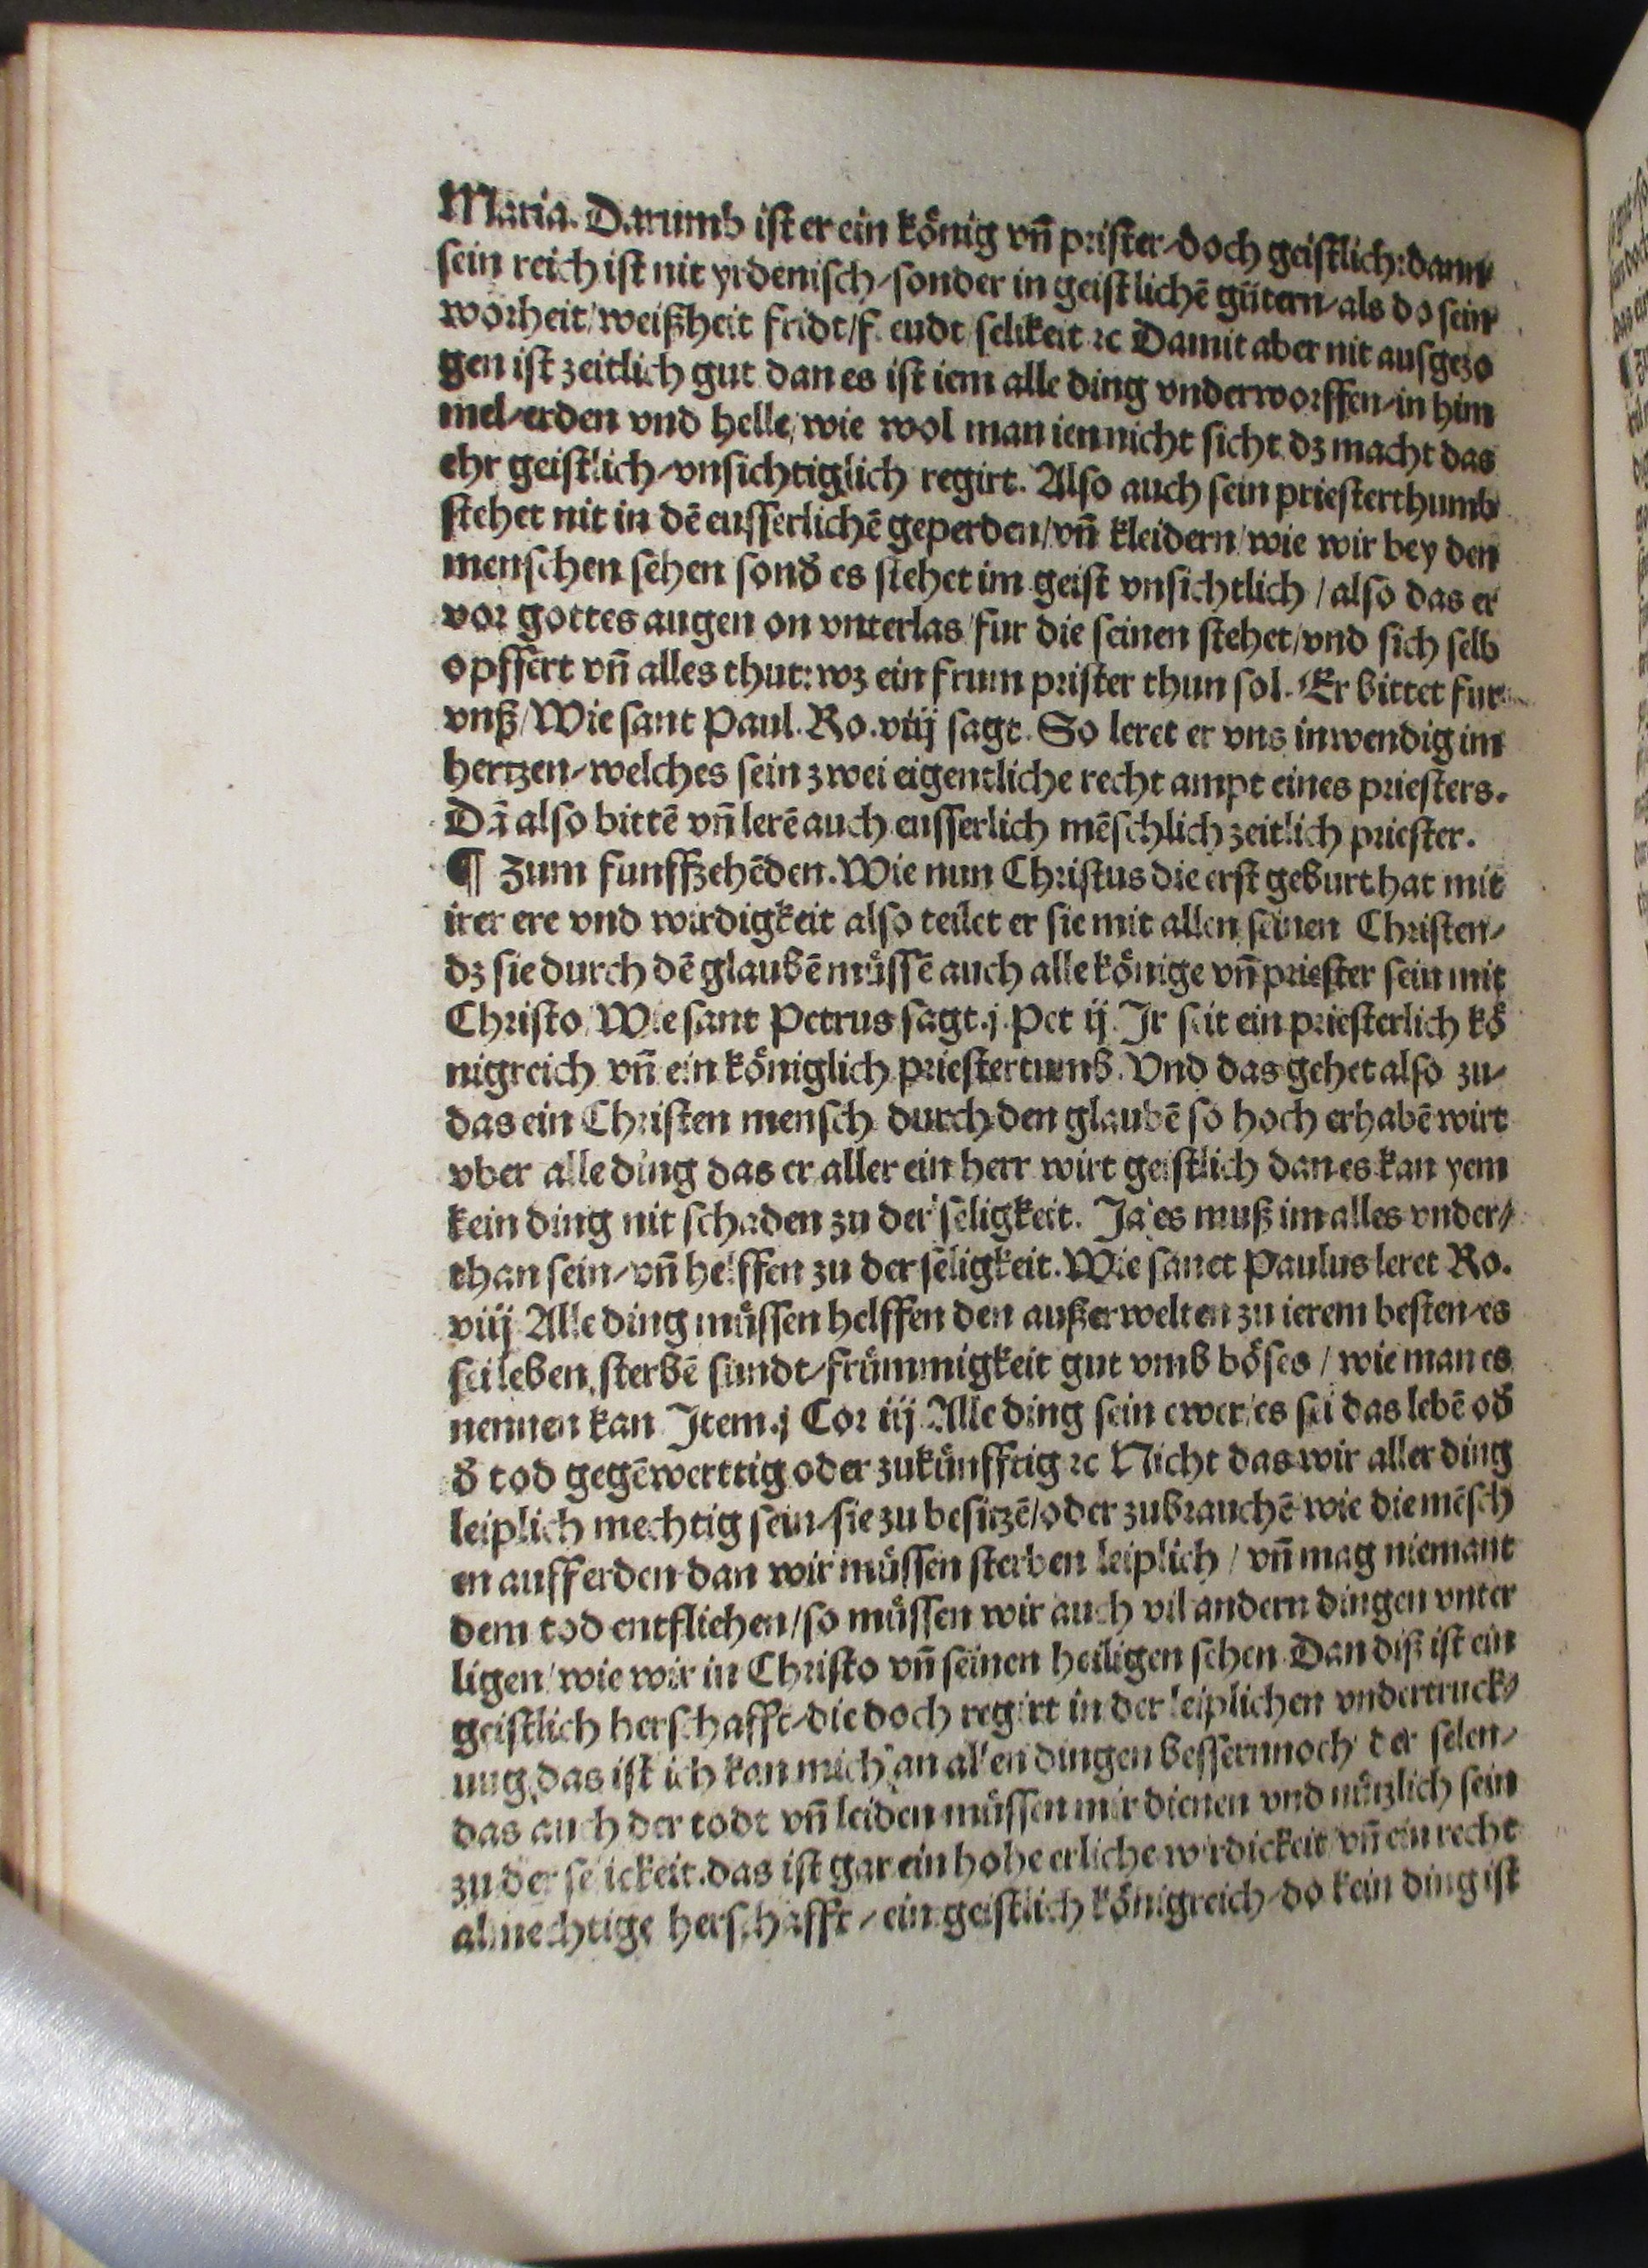 Maria. Darumb ist er ein koͤnig vñ prister/doch geistlich:dann
sein reich ist nit yrdenisch/sonder in geistlichē guͤtern/als do sein
worheit/weißheit fridt/f eudt selikeit ꝛc Damit aber nit ausgezo
gen ist zeitlich gut dan es ist iem alle ding vnderworffen/in him
mel/erden vnd helle/wie wol man ien nicht sicht dz macht das
ehr geistlich/vnsichtiglich regirt. Also auch sein priesterthumb
stehet nit in dē eusserlichē geperden/vñ kleidern/wie wir bey den
menschen sehen sonď es stehet im geist vnsichtlich/also das er
vor gottes augen on vnterlas/fur die seinen stehet/vnd sich selb
opffert vñ alles thut:wz ein frum prister thun sol. Er bittet fur
vnß/Wie sant Paul.Ro.viij sagt. So leret er vns inwendig im
hertzen/welches sein zwei eigentliche recht ampt eines priesters.
Dā also bittē vñ lerē auch eusserlich mēschlich zeitlich priester.
¶ Zum funffzehēden.Wie nun Christus die erst geburt hat mit
irer ere vnd wirdigkeit also teilet er sie mit allen seinen Christen/
dz sie durch dē glaubē muͤssē auch alle koͤnige vñ priester sein mit
Christo/Wie sant Petrus sagt.j.Pet ij. Jr seit ein priesterlich koͤ
nigreich vñ ein koͤniglich priestertumb. Vnd das gehet also zu/
das ein Christen mensch durch den glaubē so hoch erhabē wirt
vber alle ding das er aller ein herr wirt geistlich dan es kan yem
kein ding nit schaden zu der seligkeit. Ja es muß im alles vnder/
than sein/vñ helffen zu der seligkeit.Wie sanct Paulus leret Ro.
viij Alle ding muͤssen helffen den außerwelten zu ierem besten/es
sei leben,sterbē sundt/fruͤmmigkeit gut vmb boͤses/wie man es
nennen kan Jtem.j Cor iij Alle ding sein ewer/es sei das lebē oď
ď tod gegēwerttig oder zukuͤnfftig ꝛc Nicht das wir aller ding
leiplich mechtig sein/sie zu besitzē/oder zubrauchē wie die mēsch
en auff erden dan wir muͤssen sterben leiplich/vñ mag niemant
dem tod entfliehen/so muͤssen wir auch vil andern dingen vnter
ligen/wie wir in Christo vñ seinen heiligen sehen Dan diß ist ein
geistlich herschafft/die doch regirt in der leiplichen vndertruck/
ung,das ist ich kan mich an allen dingen bessern noch der selen/
das auch der todt vñ leiden muͤssen mir dienen vnd nuͤtzlich sein
zu der se ickeit.das ist gar ein hohe erliche wirdickeit/vñ ein recht
almechtige herschafft/ein geistlich koͤnigreich/do kein ding ist